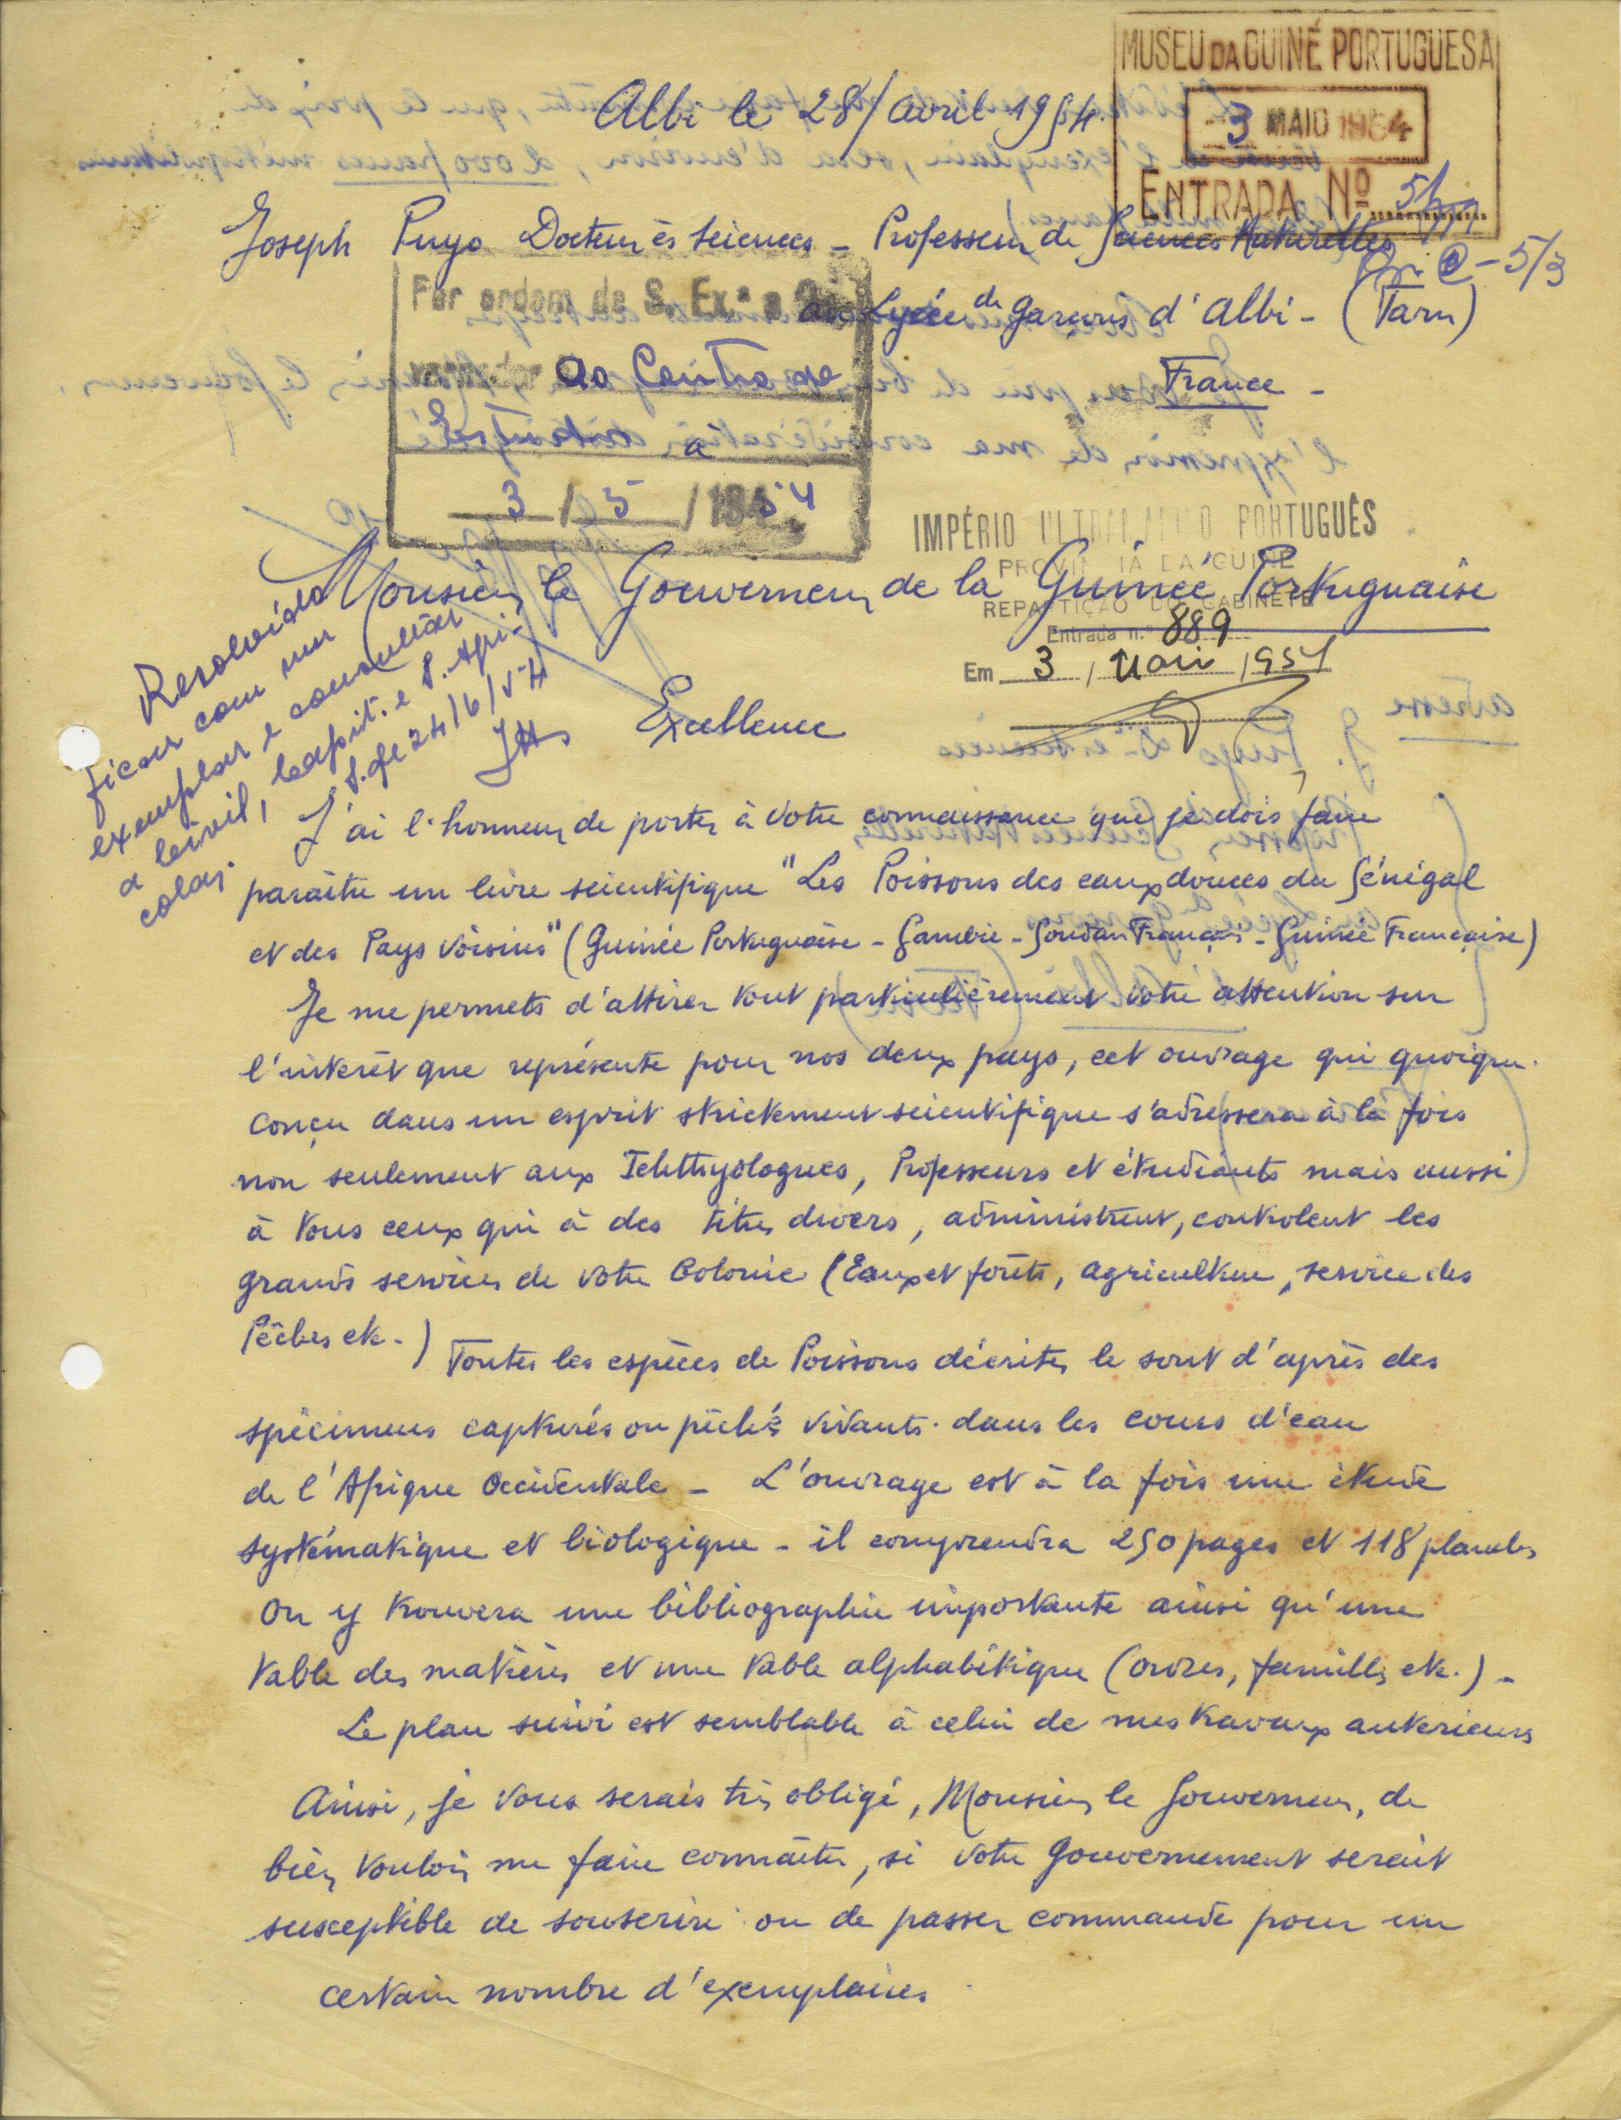 MUSEU DA GUINÉ PORTUGUESA
3 MAIO 1954
ENTRADA Nº
Albi le 28/avril 1954.
Joseph Puyo Docteur ès Sciences - Professeur de Sciences Naturelles
au Lycée de Garçons d'Albi - (Tarn)
France -
Por ordem de S. Ex.ª o
ao Centro de
Estudos
3 / 5 / 1954
IMPÉRIO ULTRAMARINO PORTUGUÊS
PROVINCIA DA GUINÉ
REPARTIÇÃO DO GABINETE
Entrada n.º 889
Em 3 / Maio / 1954
Monsieur le Gouverneur de la Guinée Portuguaise
Resolvido
ficar com um
exemplar e consultar
a Civil,
24/6/54
Excellence
J'ai l'honneur de porter à votre connaissance que je dois faire
paraitre un livre scientifique "Les Poissons des eaux douces du Sénégal
et des Pays voisins" (Guinée Portuguaise - Gambie - Soudan Français - Guinée Française)
Je me permets d'attirer tout particulièrement votre attention sur
l'interêt que représente pour nos deux pays, cet ouvrage qui quoique
conçu dans un esprit strictement scientifique s'adressera à la fois
non seulement aux Ichthyologues, Professeurs et étudiants mais aussi
à tous ceux qui à des titres divers, administrent, controlent les
grands services de votre Colonie (Eaux et forêts, agriculture, service des
Pêches etc.)
Toutes les espèces de Poissons décrites le sont d'après des
spécimens capturés ou pêchés vivants dans les cours d'eau
de l'Afrique Occidentale - L'ouvrage est à la fois une étude
systématique et biologique - il comprendra 250 pages et 118 planches
on y trouvera une bibliographie importante ainsi qu'une
table des matières et une table alphabétique (ordres, familles etc.) -
Le plan suivi est semblable à celui de mes travaux anterieurs
Ainsi, je vous serais très obligé, Monsieur le Gouverneur, de
bien vouloir me faire connaitre, si votre Gouvernement serait
susceptible de souscrire ou de passer commande pour un
certain nombre d'exemplaires